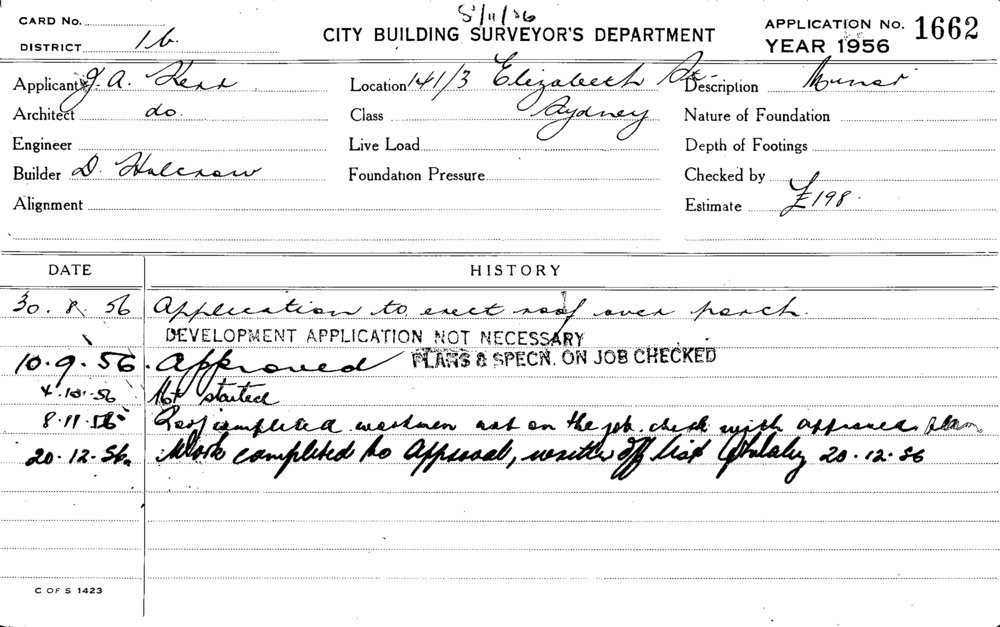 8/11/56
CARD No.
CITY BUILDING SURVEYOR'S DEPARTMENT
APPLICATION No. 1662
DISTRICT 16.
YEAR 1956
Applicant J. A. Kerr Location 141/3 Elizabeth St. Description Minor
Architect do. Class Sydney Nature of Foundation
Engineer Live Load Depth of Footings
Builder D. Halcrow Foundation Pressure Checked by
Alignment Estimate £198.
DATE HISTORY
30. 8. 56 Application to erect roof over porch.
DEVELOPMENT APPLICATION NOT NECESSARY
10.9.56. Approved PLANS & SPECN. ON JOB CHECKED
4.10.56 Not started
8.11.56 Roof completed workmen not on the job. check with approved plan
20.12.56. Work completed to Approval, written off list 20.12.56
C OF S 1423